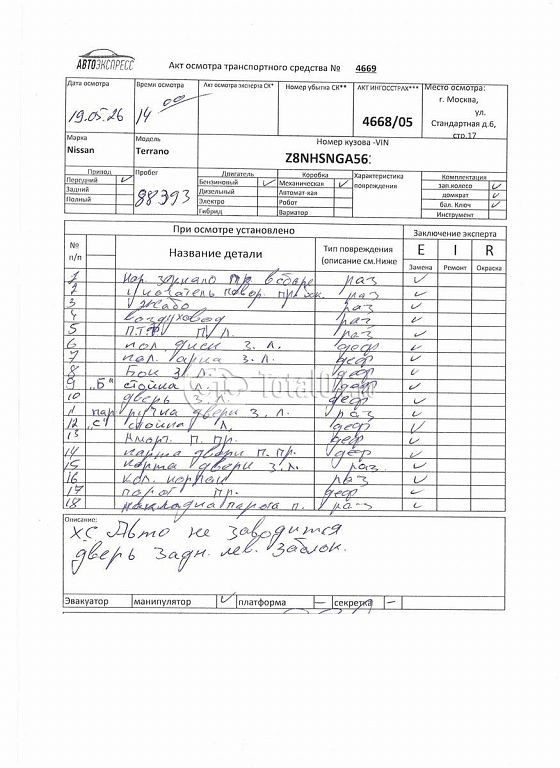 АВТОЭКСПРЕСС
Акт осмотра транспортного средства № 4669
Дата осмотра Время осмотра Акт осмотра эксперта СК* Номер убытка СК** АКТ ИНГОССТРАХ*** Место осмотра:
19.05.26 14 00 4668/05 г. Москва, ул. Стандартная д.6, стр.17
Марка Модель Номер кузова -VIN
Nissan Terrano Z8NHSNGA56
Привод Пробег Двигатель Коробка Характеристика повреждения Комплектация
Передний 88393 Бензиновый Механическая зап.колесо
Задний Дизельный Автомат-кая домкрат
Полный Электро Робот бал. Ключ
Гибрид Вариатор Инструмент
При осмотре установлено Заключение эксперта
№ п/п Название детали Тип повреждения (описание см.Ниже E I R
Замена Ремонт Окраска
1 нар. зеркало пр в сборе раз
2 указатель повор. пр. раз
3 Жабо раз
4 воздуховод раз
5 П.Т.Ф. П. Л. раз
6 кол. диск З. Л. деф
7 кол. арка З. Л. деф
8 Бок З. Л. деф
9 „Б“ стойка Л. деф
10 дверь З. Л. деф
11 нар ручка двери З. Л. раз
12 „С“ стойка Л. деф
13 Аморт. П. пр. деф
14 карта двери П. пр. деф
15 карта двери З. Л. раз
16 кол. колпак раз
17 порог пр. деф
18 накладка порога П. раз
Описание:
Х.С Авто не заводится
дверь задн. лев. заблок.
Эвакуатор манипулятор платформа — секретка —